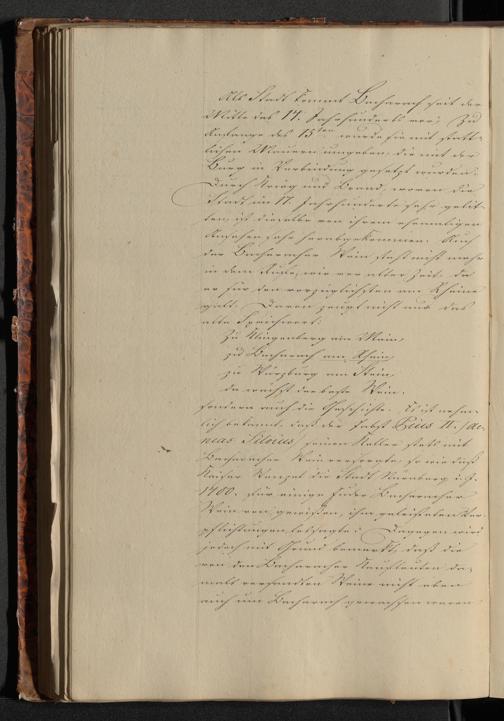 Als Stadt kommt Bacharach seit der
Mitte des 14. Jahrhunderts vor; zu
Anfange des 15ten wurde sie mit statt-
lichen Mauern umgeben, die mit der
Burg in Verbindung gesetzt wurden.
Durch Krieg und Brand, wovon die
Stadt im 17. Jahrhunderte sehr gelit-
ten, ist dieselbe von ihrem ehemaligen
Ansehen sehr herabgekommen. Auch
der Bacharacher Wein steht nicht mehr
in dem Rufe, wie vor alter Zeit, da
er für den vorzüglichsten am Rheine
galt. Davon zeugt nicht nur das
alte Sprichwort:
Zu Klingenberg am Main,
zu Bacharach am Rhein,
zu Würzburg am Stein,
da wächst der beste Wein.
sondern auch die Geschichte. Es ist nehm-
lich bekannt, daß der Pabst Pius II. (Ae-
neas Silvius) seinen Keller stets mit
Bacharacher Wein versorgte, so wie daß
Kaiser Wenzel die Stadt Nürnberg i. J.
1400. für einige Fuder Bacharacher
Wein von gewissen, ihm geleisteten Ver-
pflichtungen lossagte. Dagegen wird
jedoch mit Grund bemerkt, daß die
von den Bacharacher Kaufleuten da-
mals versandten Weine nicht eben
auch um Bacharach gewachsen waren